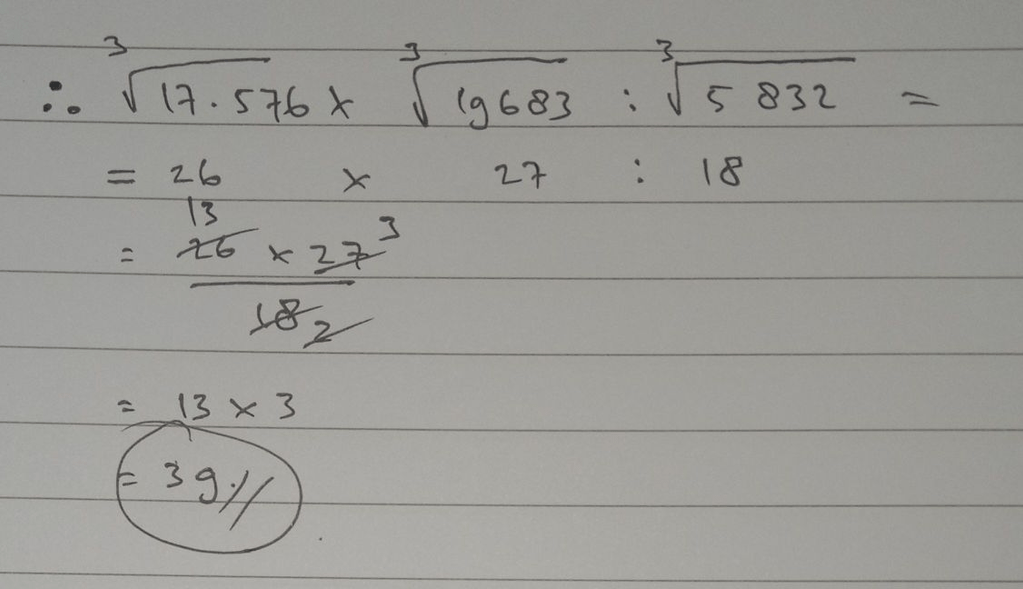 ∴ ∛17.576 × ∛19683 : ∛5832 =
= 26 × 27 : 18
13 3
= 26 × 27
18 2
= 13 × 3
= 39 //